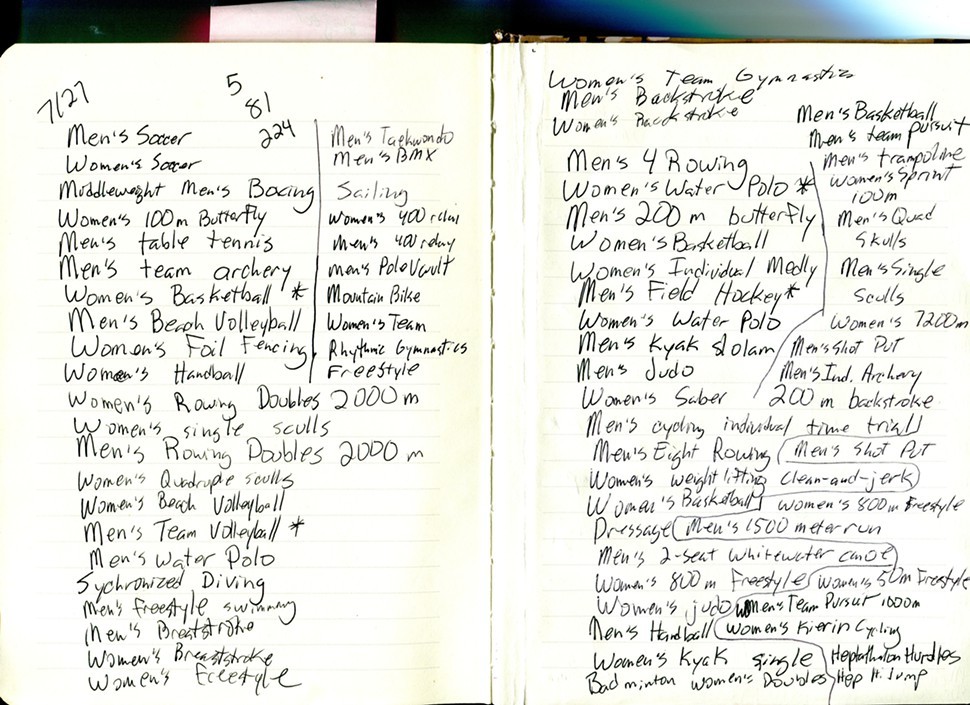 7/27
5
81
224
Men's Soccer
Women's Soccer
Muddleweight Men's Boxing
Women's 100m Butterfly
Men's table tennis
Men's team archery
Women's Basketball *
Men's Beach Volleyball
Women's Foil Fencing
Women's Handball
Women's Rowing Doubles 2000 m
Women's single sculls
Men's Rowing Doubles 2000 m
Women's Quadruple sculls
Women's Beach Volleyball
Men's Team Volleyball *
Men's Water Polo
Sychronized Diving
Men's freestyle swimming
Men's Breststroke
Women's Breaststroke
Women's Freestyle
Men's Taekwondo
Men's BMX
Sailing
Women's 400 relay
Men's 400 relay
Men's Pole Vault
Mountain Bike
Women's Team
Rhythmic Gymnastics
Freestyle
Women's Team Gymnastics
Men's Backstroke
Women's Backstroke
Men's 4 Rowing
Women's Water Polo *
Men's 200 m butterfly
Women's Basketball
Women's Individual Medly
Men's Field Hockey *
Women's Water Polo
Men's Kyak slolam
Men's Judo
Women's Saber
Men's cycling individual time triall
Men's Eight Rowing
Women's weight lifting clean-and-jerk
Women's Basketball
Dressage
Men's 2-seat whitewater canoe
Women's 800 m Freestyle
Women's judo
Men's Handball
Women's Kyak single
Badminton women's Doubles
Men's Basketball
Men's team pursuit
Men's trampoline
Women's Sprint
100m
Men's Quad
Skulls
Men's Single
Sculls
Women's 7200m
Men's Shot Put
Men's Ind. Archery
200 m backstroke
Men's Shot Put
women's 800m Freestyle
Men's 1500 meter run
women's 50m Freestyle
Men's Team Pursuit 1000m
Women's Kierin Cycling
Heptathalon Hurdles
Hep Hi Jump